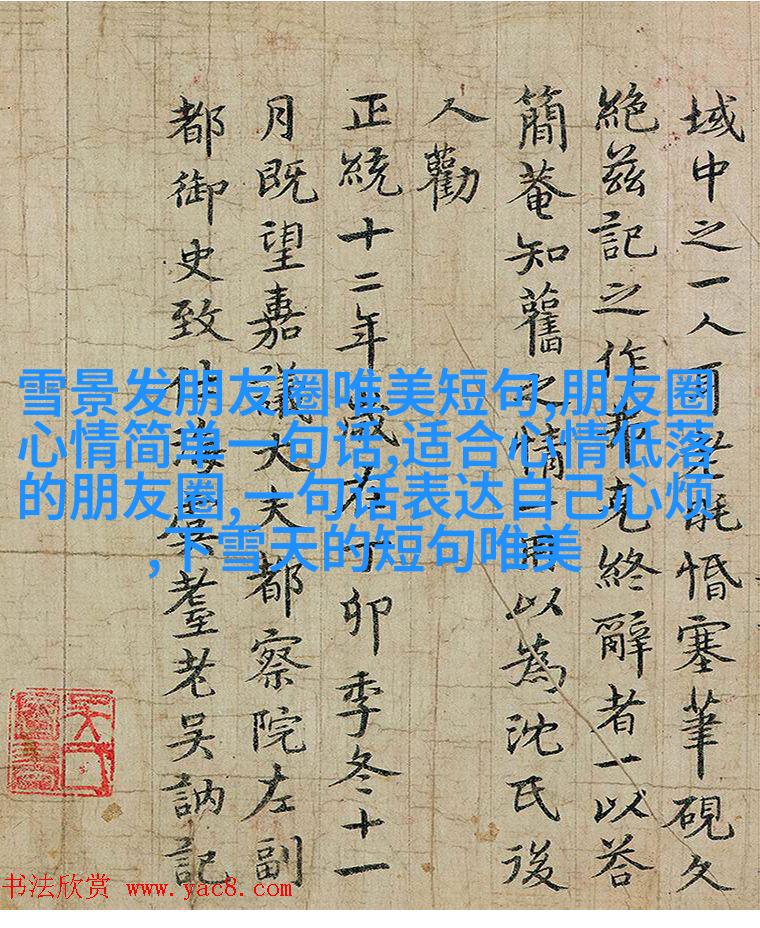 域中之一人老惛塞筆硯久
絶茲記之作克終辭者一以荅
簡菴知舊之情一用以為沈氏後
人勸
正統十二年歲在丁卯季冬十一
月既望嘉議大夫都察院左副
都御史致仕海虞耋老吳訥記
雪景发朋友圈唯美短句,朋友圈
心情简单一句话,适合心情低落
的朋友圈,一句话表达自己心烦
,下雪天的短句唯美
书法欣赏 www.yac8.com